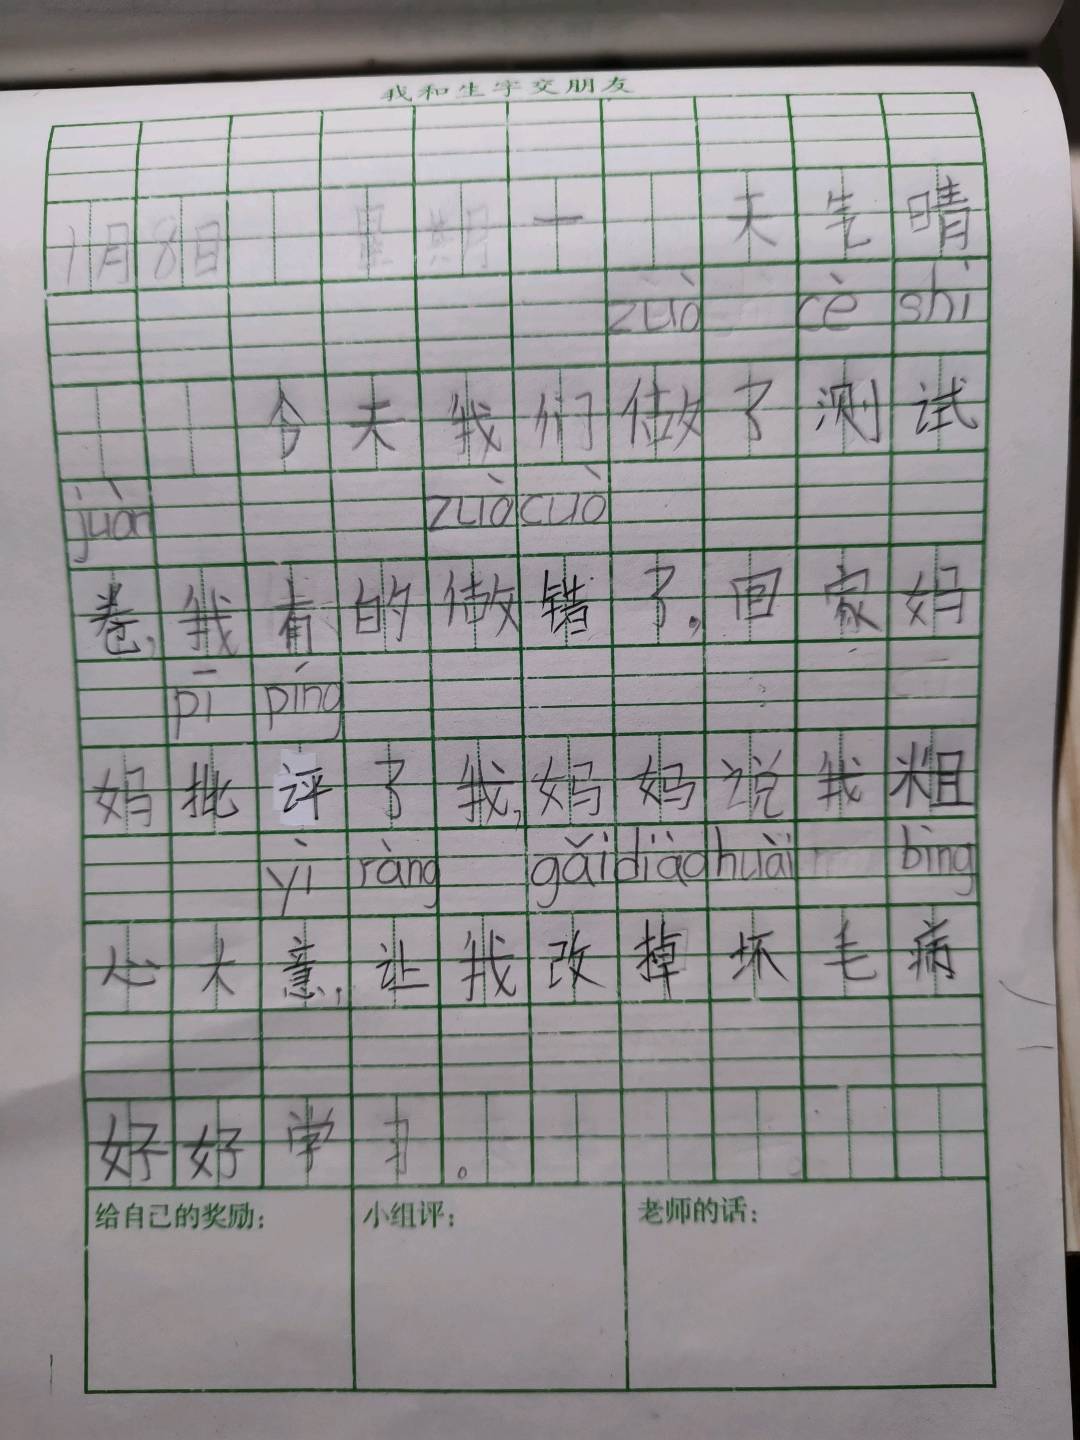 我和生字交朋友
1月8日 星期一 天气晴
zuò cè shì
今天我们做了测试
juàn zuò cuò
卷,我有的做错了,回家妈
pī píng
妈批评了我,妈妈说我粗
yì ràng gǎi diào huài bìng
心大意,让我改掉坏毛病
好好学习。
给自己的奖励: 小组评: 老师的话: